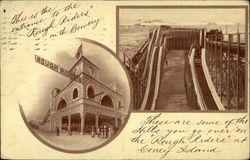 This is the
entrance to the
Rough Riders
on the Bowery
ROUGH
These are some of the
hills you go over on
the Rough Riders at
Coney Island